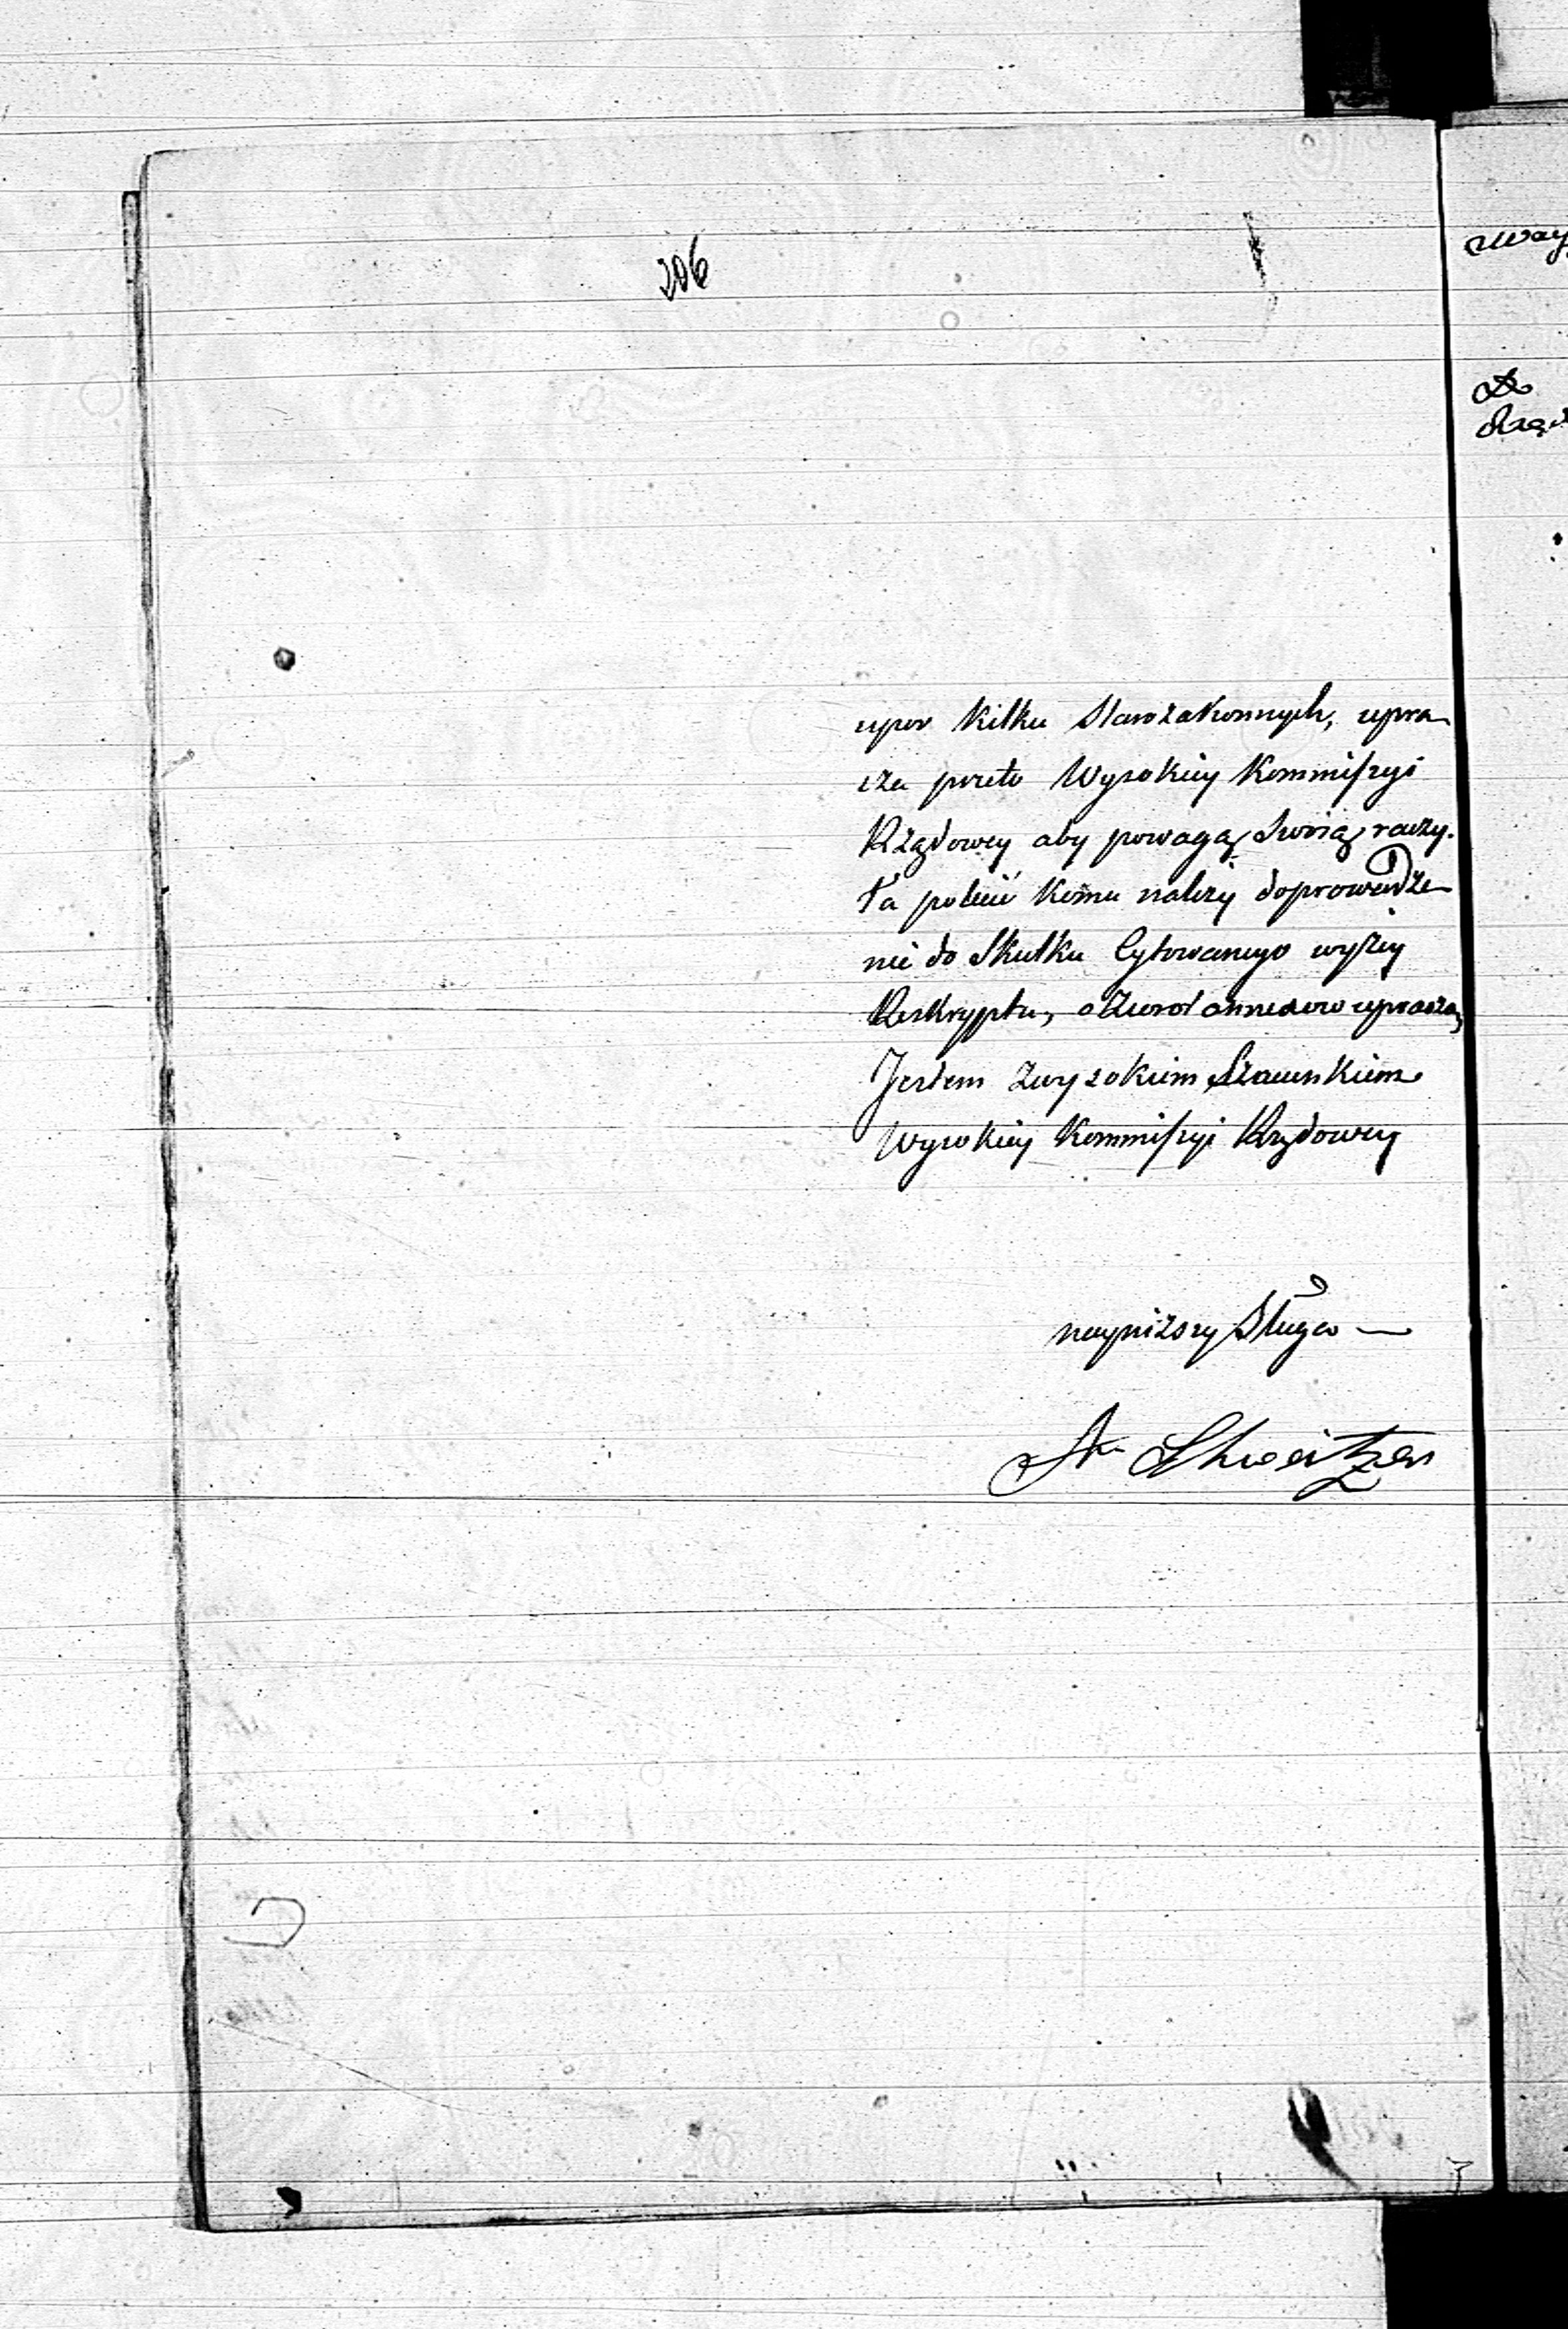 206
upor kilku Starozakonnych, upra-
sza przeto Wysokiey Kommissyi
Rządowey aby powagą Swoią raczy-
ła polecić komu należy doprowadze-
nie do Skutku Cytowanego wyżey
Reskryptu, o Zwrot annexow uprasza,
Jestem Zwysokiem Szacunkiem
Wysokiey Kommissyi Rządowey
nayniższy Sługa —
Schweitzer